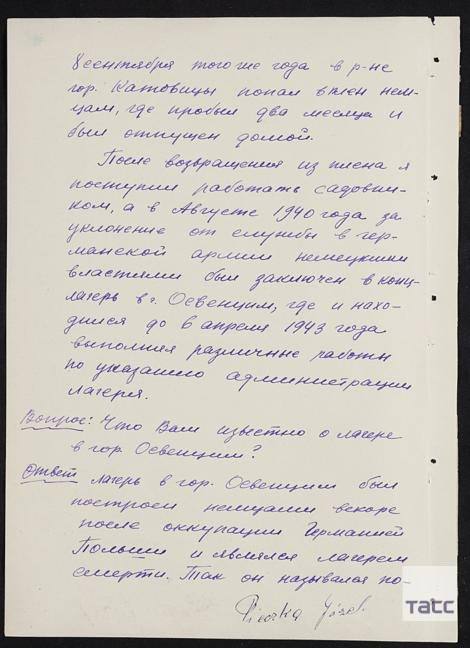 8 сентября того же года в р-не
гор. Катовицы попал в плен нем-
цам, где пробыл два месяца и
был отпущен домой.
После возвращения из плена я
поступил работать садовни-
ком, а в Августе 1940 года за
уклонение от службы в гер-
манской армии немецкими
властями был заключен в конц-
лагерь в г. Освенцим, где и нахо-
дился до 6 апреля 1943 года
выполняя различные работы
по указанию администрации
лагеря.
Вопрос: Что Вам известно о лагере
в гор. Освенцим?
Ответ Лагерь в гор. Освенцим был
построен немцами вскоре
после оккупации Германией
Польши и являлся лагерем
смерти. Так он назывался по-
Pieczka Józef
ТАСС